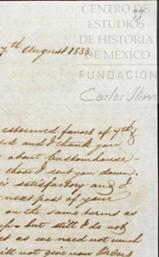 CENTRO DE
ESTUDIOS
DE HISTORIA
DE MEXICO
FUNDACIÓN
Carlos Slim
7th August 1833
esteemed favors of 7th &
and I thank you
about Customhouse
those I sent you down.
is satisfactory and I
next post of your
on the same terms as
but still I do not
as we need not much
will not give new Orders